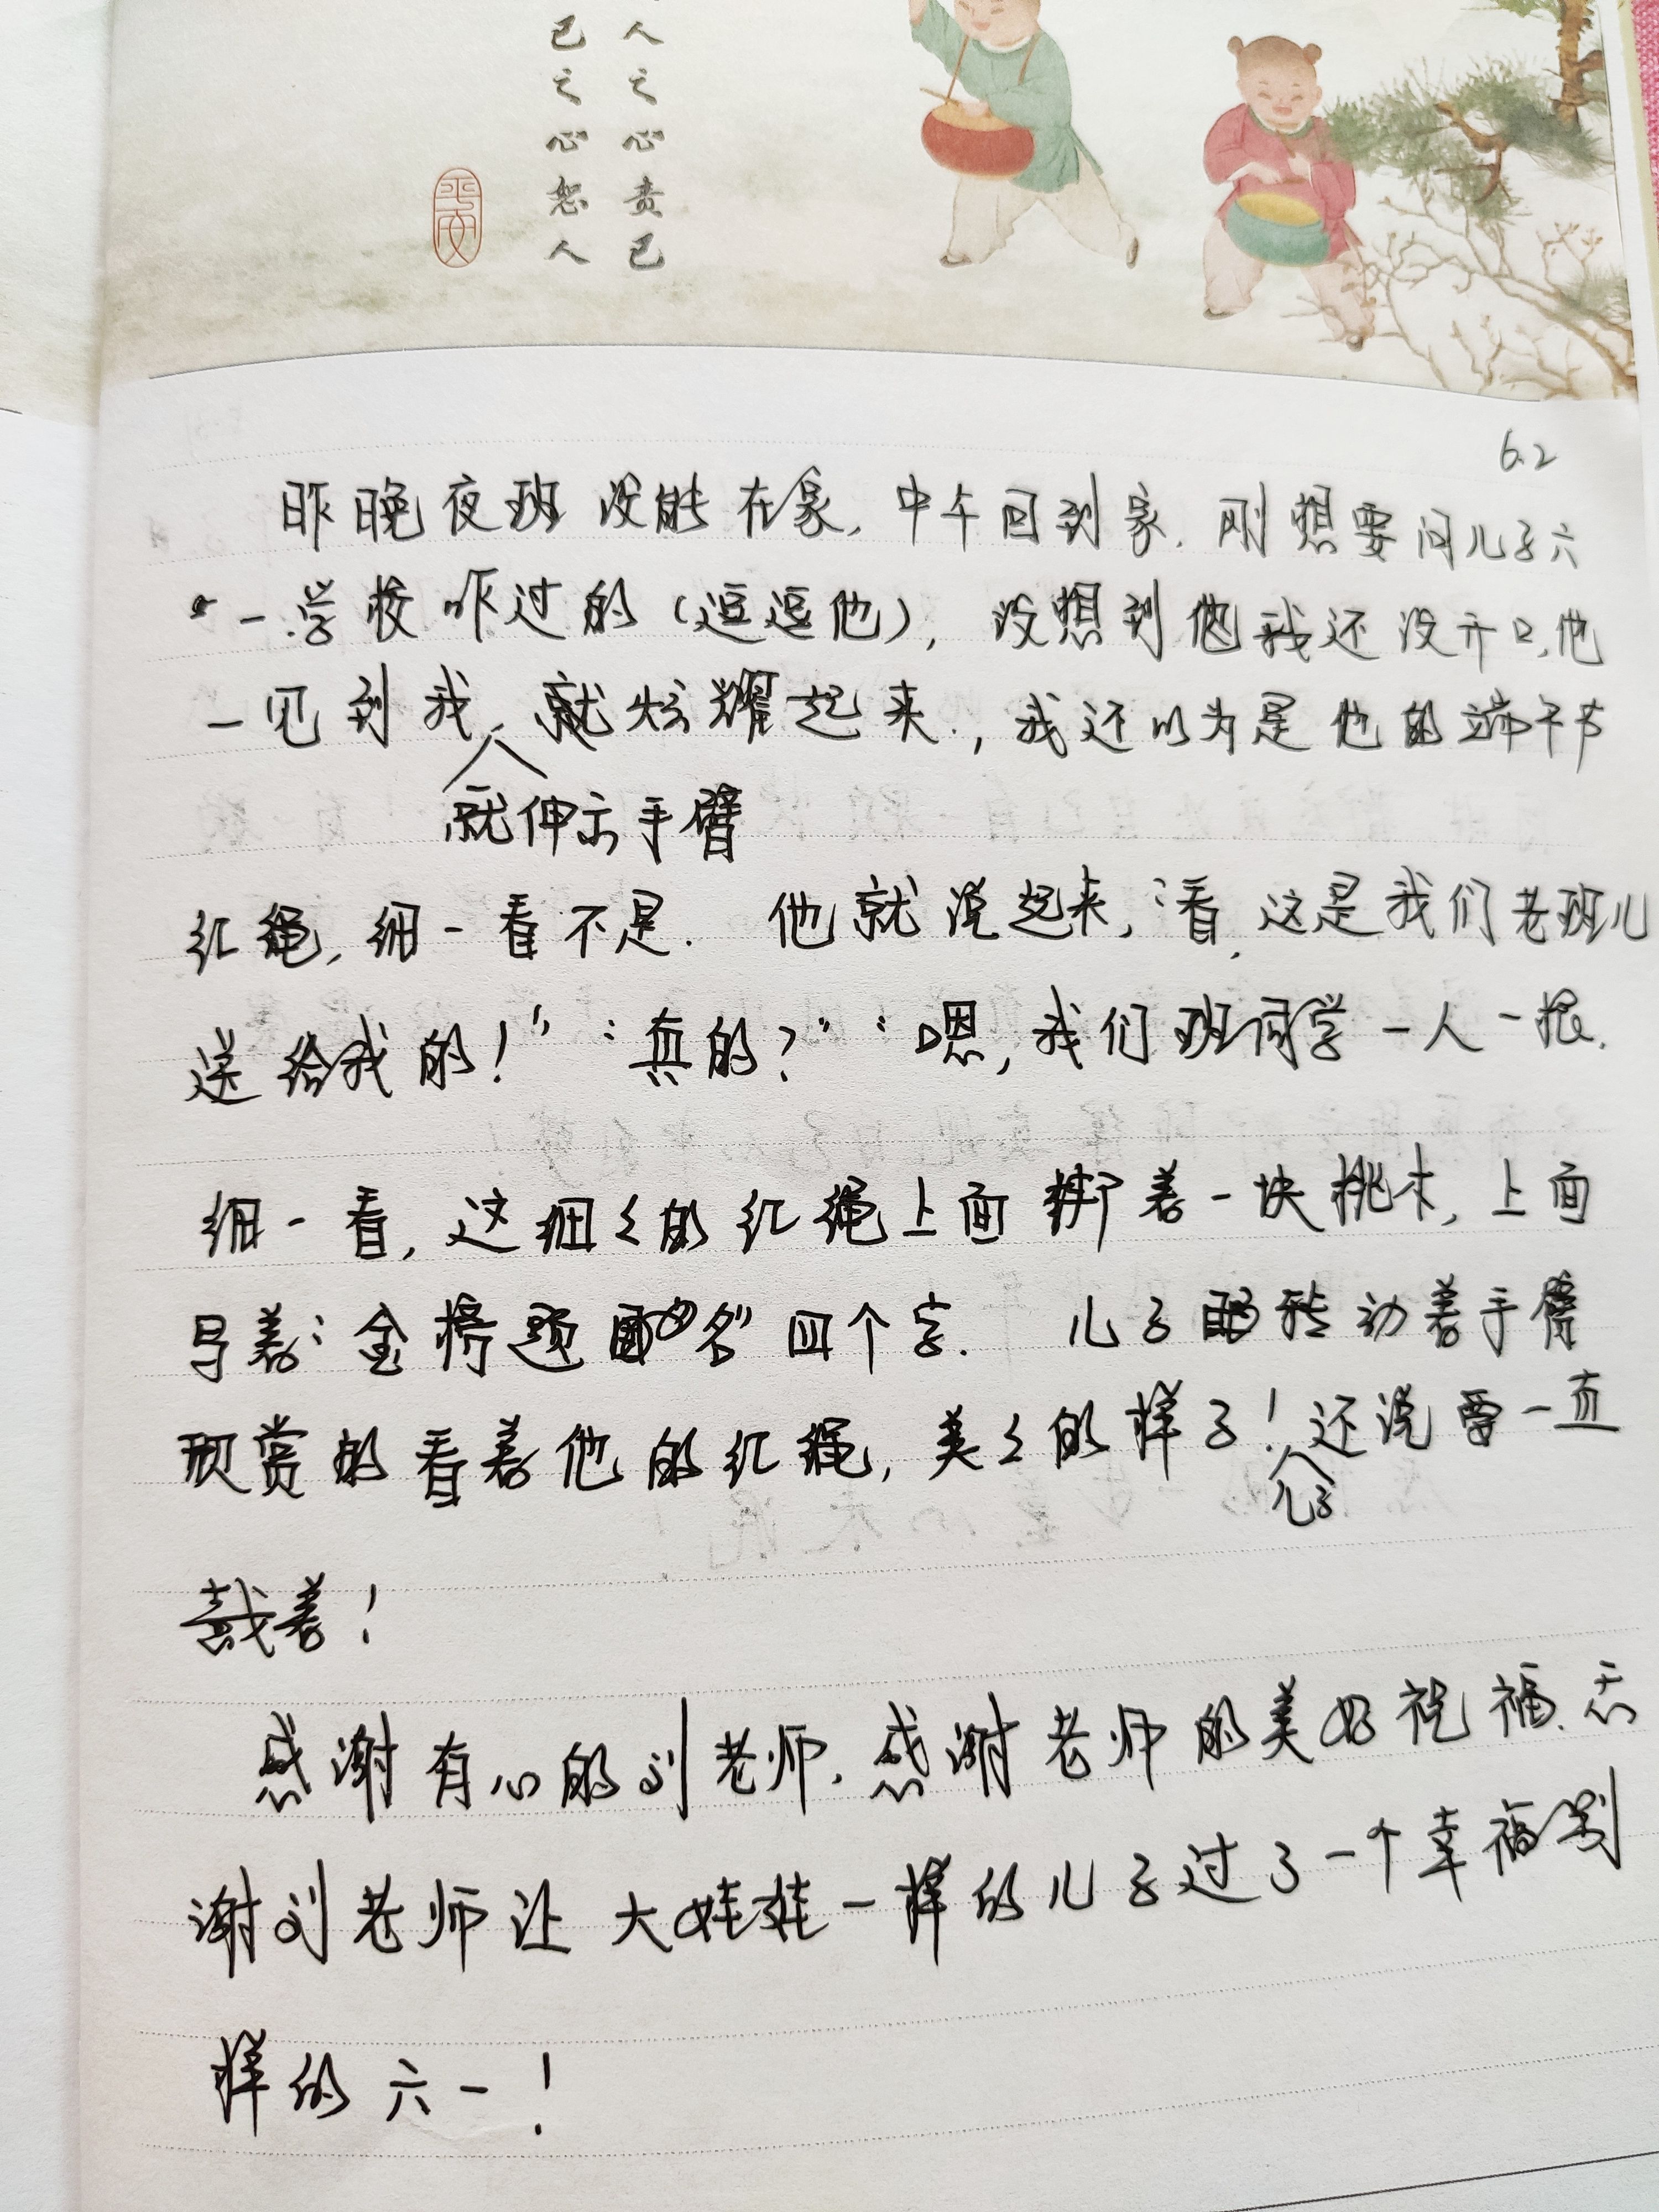 人之心责己
己之心恕人
平安
6.2
昨晚夜班没能在家,中午回到家.刚想要问儿子六
一学校咋过的(逗逗他),没想到他我还没开口,他
一见到我,就炫耀起来.,我还以为是他的端午节
就伸出手臂
红绳,细一看不是.他就说起来,“看,这是我们老班儿
送给我的!”“真的?”“嗯,我们班同学一人一根.
细一看,这细々的红绳上面绑着一块桃木,上面
写着“金榜题名”四个字.儿子转动着手臂
欣赏的看着他的红绳,美々的样子!还说要一直
儿子
戴着!
感谢有心的刘老师.感谢老师的美好祝福.感
谢刘老师让大娃娃一样的儿子过了一个幸福别
样的六一!